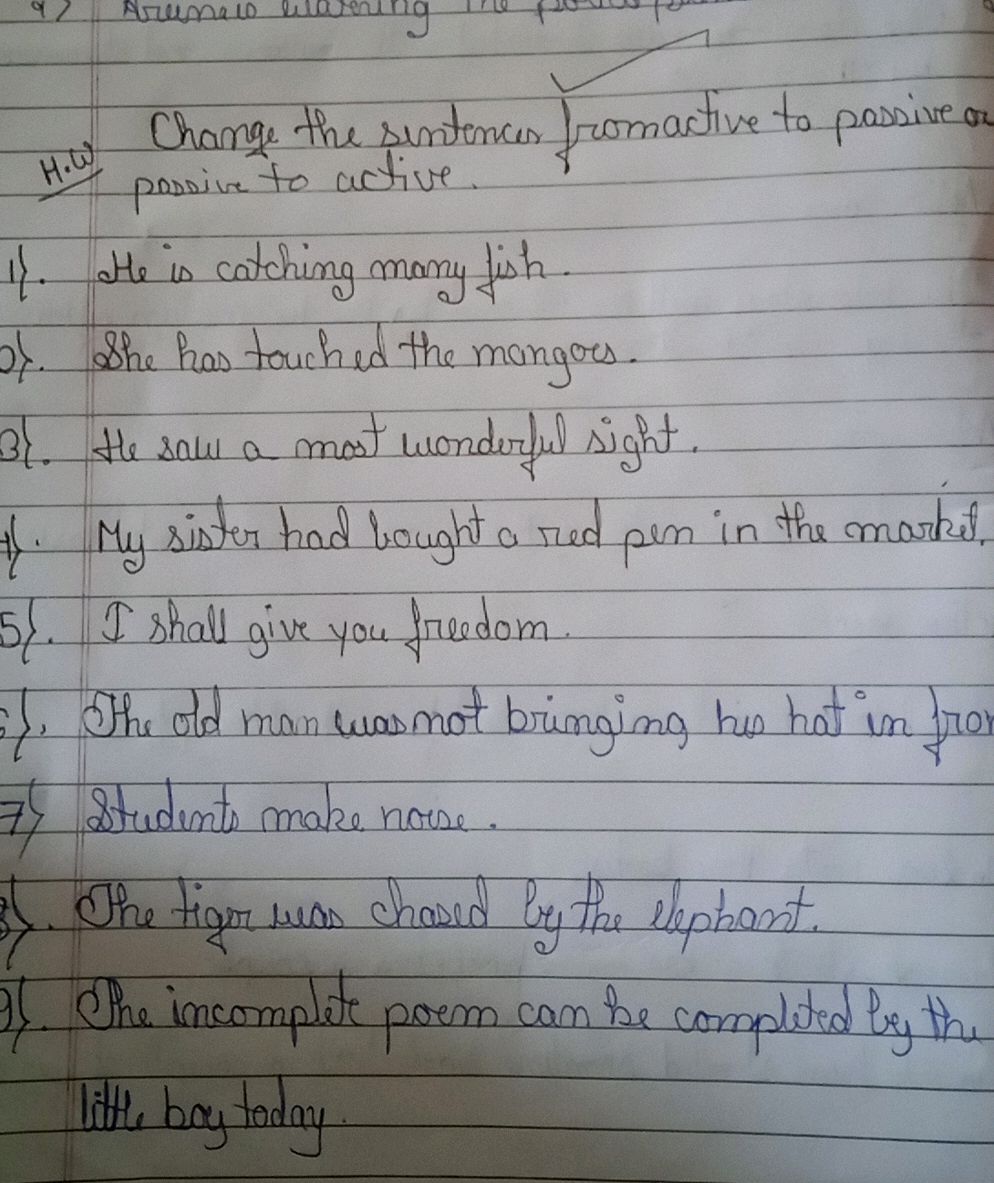 9) Animals wearing the
Change the sentences from active to passive or
H.W
passive to active.
1). He is catching many fish.
2). She has touched the mangoes.
3). He saw a most wonderful sight.
4). My sister had bought a red pen in the market.
5). I shall give you freedom.
6). The old man was not bringing his hat in
7) Students make noise.
8). The tiger was chased by the elephant.
9). The incomplete poem can be completed by the
little boy today.